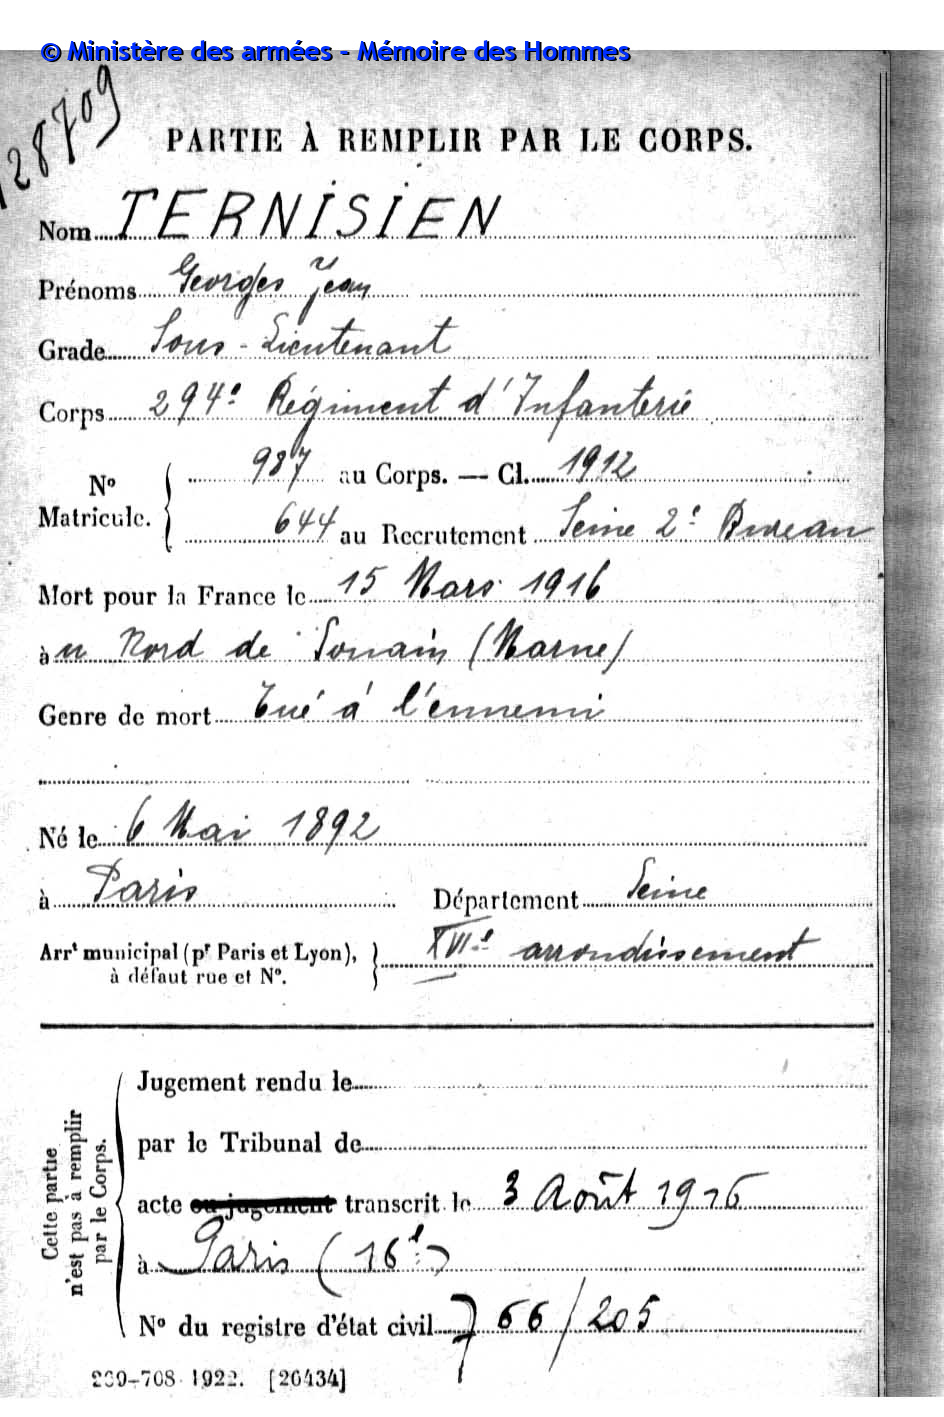 © Ministère des armées - Mémoire des Hommes
128709
PARTIE À REMPLIR PAR LE CORPS.
Nom TERNISIEN
Prénoms Georges Jean
Grade Sous-Lieutenant
Corps 294e Régiment d'Infanterie
No Matricule. 987 au Corps. — Cl. 1912
644 au Recrutement Seine 2e Bureau
Mort pour la France le 15 Mars 1916
à u Nord de Souain (Marne)
Genre de mort Tué à l'ennemi
Né le 6 Mai 1892
à Paris Département Seine
Arrt municipal (pr Paris et Lyon), à défaut rue et No. XVIe arrondissement
Cette partie n'est pas à remplir par le Corps.
Jugement rendu le
par le Tribunal de
acte ou jugement transcrit le 3 Août 1916
à Paris (16e)
No du registre d'état civil 766/205
269-708 1922. [26434]